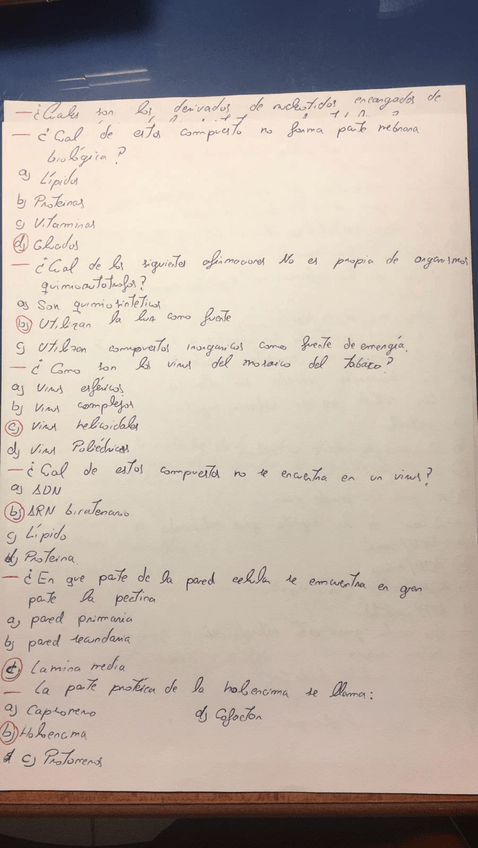 — ¿Cuales son los derivados de nucleotidos encargados de
— ¿Cual de estos compuesto no forma parte mebrana
biológica?
a) Lípidos
b) Proteinas
c) Vitaminas
d) Glucidos
— ¿Cual de los siguientes afirmaciones No es propia de organismos
quimioautotrofos?
a) Son quimiosinteticos
b) Utilizan la luz como fuente
c) Utilizan compuestos inorganicos como fuente de emergía.
— ¿Como son los virus del mosaico del tabaco?
a) Virus esféricos
b) Virus complejos
c) Virus helicoidales
d) Virus Poliédricos
— ¿Cual de estos compuestos no se encuentra en un virus?
a) ADN
b) ARN bicatenario
c) Lípido
d) Proteína
— ¿En que parte de la pared celular se emcuentra en gran
parte la pectina
a) pared primaria
b) pared secundaria
c) Lamina media
— La parte proteica de la holoencima se llama:
a) Capsomero d) Cofactor
b) Holoencima
c) Protomeros